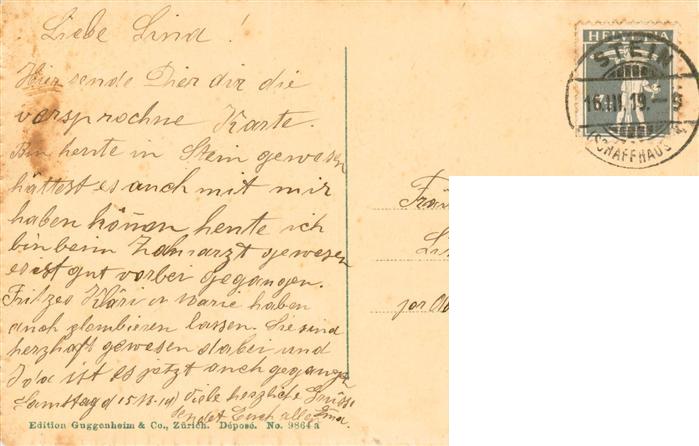 Liebe Lina!
Hier sende Dier dir die
versprochne Karte.
Bin heute in Stein gewesen
hättest es auch mit mir
haben können heute ich
bin beim Zahnarzt gewesen
es ist gut vorber gegangen.
Fritzes Kläri u Marie haben
auch plombieren lassen. Sie sind
herzhaft gewesen dabei und
Ida ist es jetzt auch gegangen
Samstag d 15.III.19 Viele herzliche Grüsse
sendet Euch allen Lina.
Edition Guggenheim & Co., Zürich. Déposé. No. 9864 a
HELVETIA
STEIN
16.III.19.-9
(SCHAFFHAUS